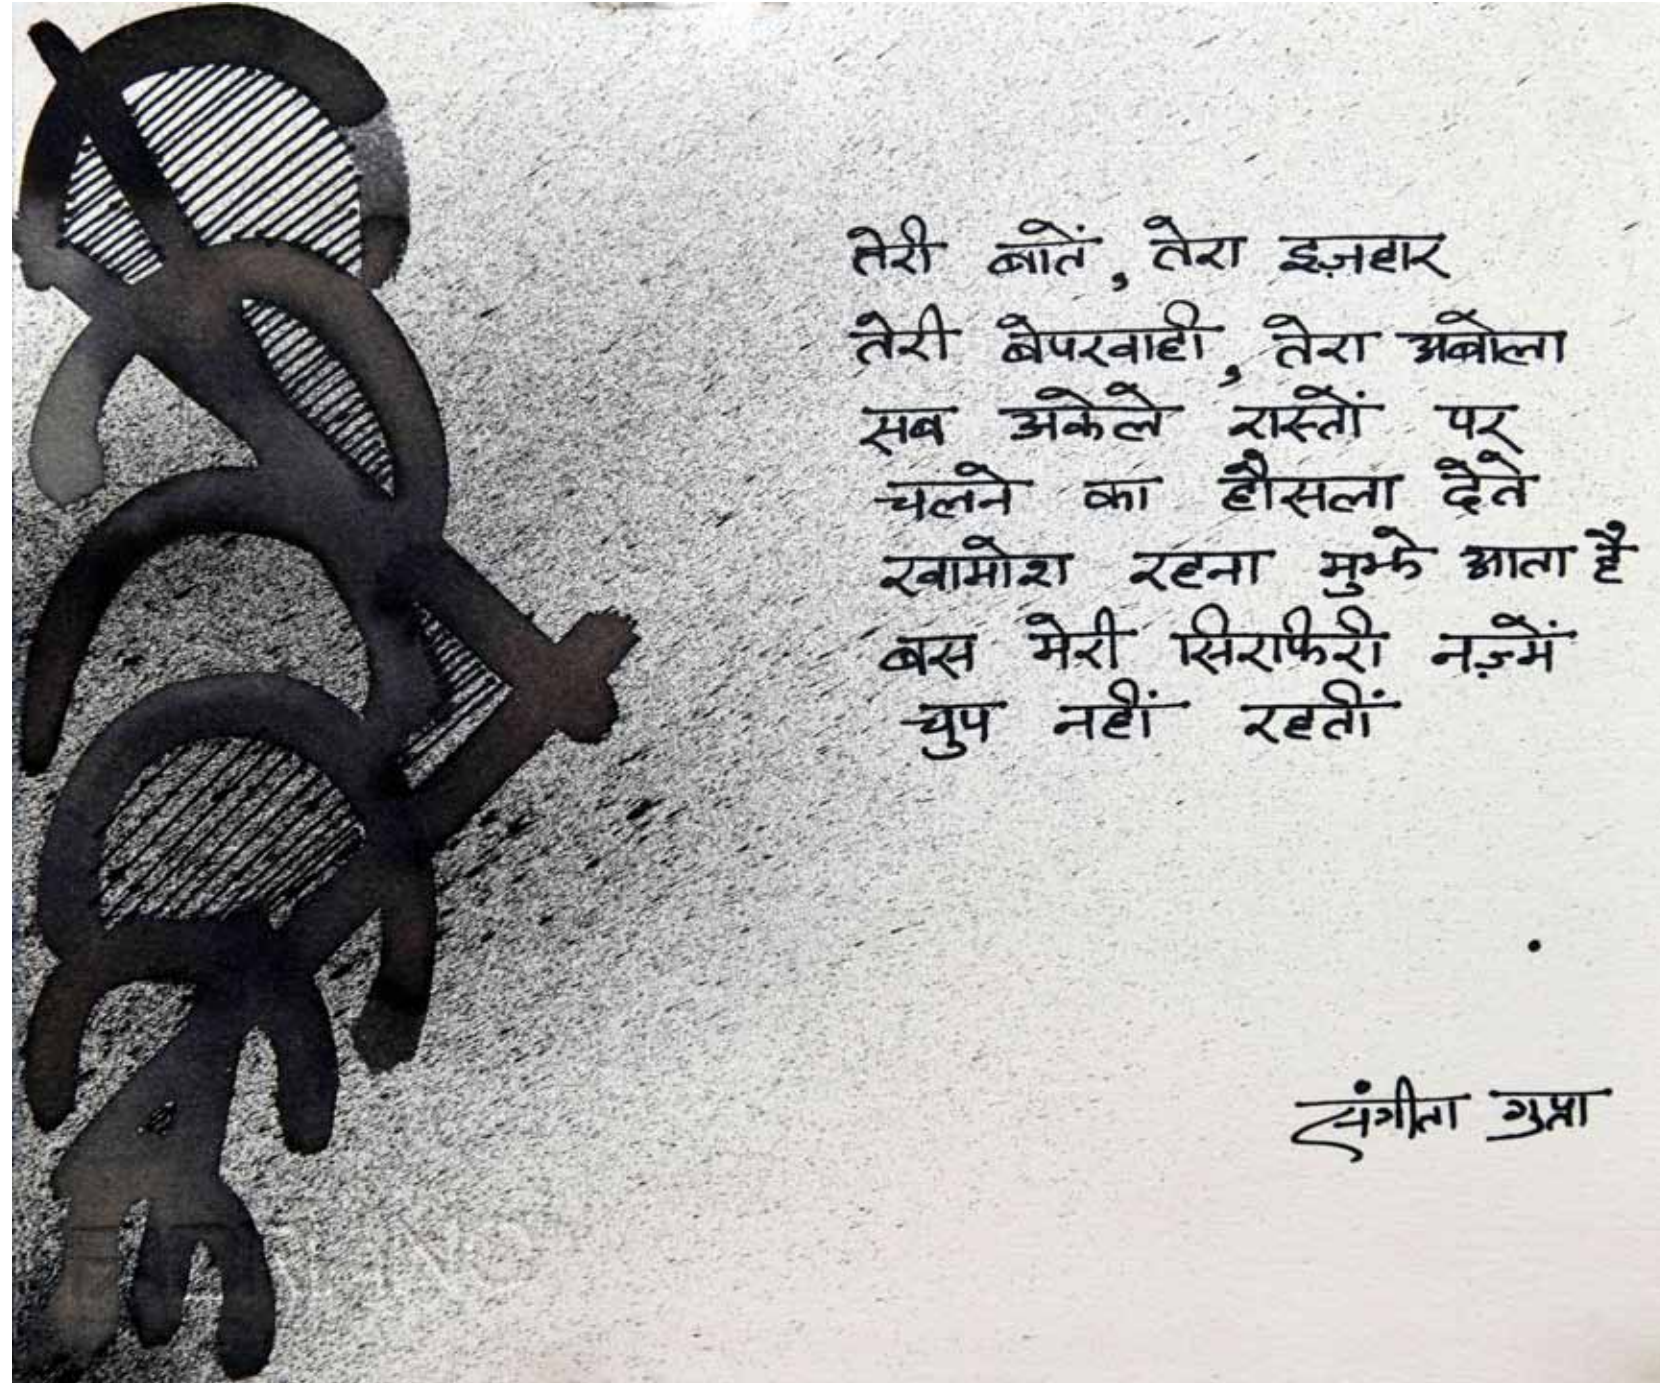 तेरी बातें, तेरा इज़हार
तेरी बेपरवाही, तेरा अबोला
सब अकेले रास्तों पर
चलने का हौसला देते
खामोश रहना मुझे आता है
बस मेरी सिरफिरी नज़्में
चुप नहीं रहतीं
संगीता गुप्ता